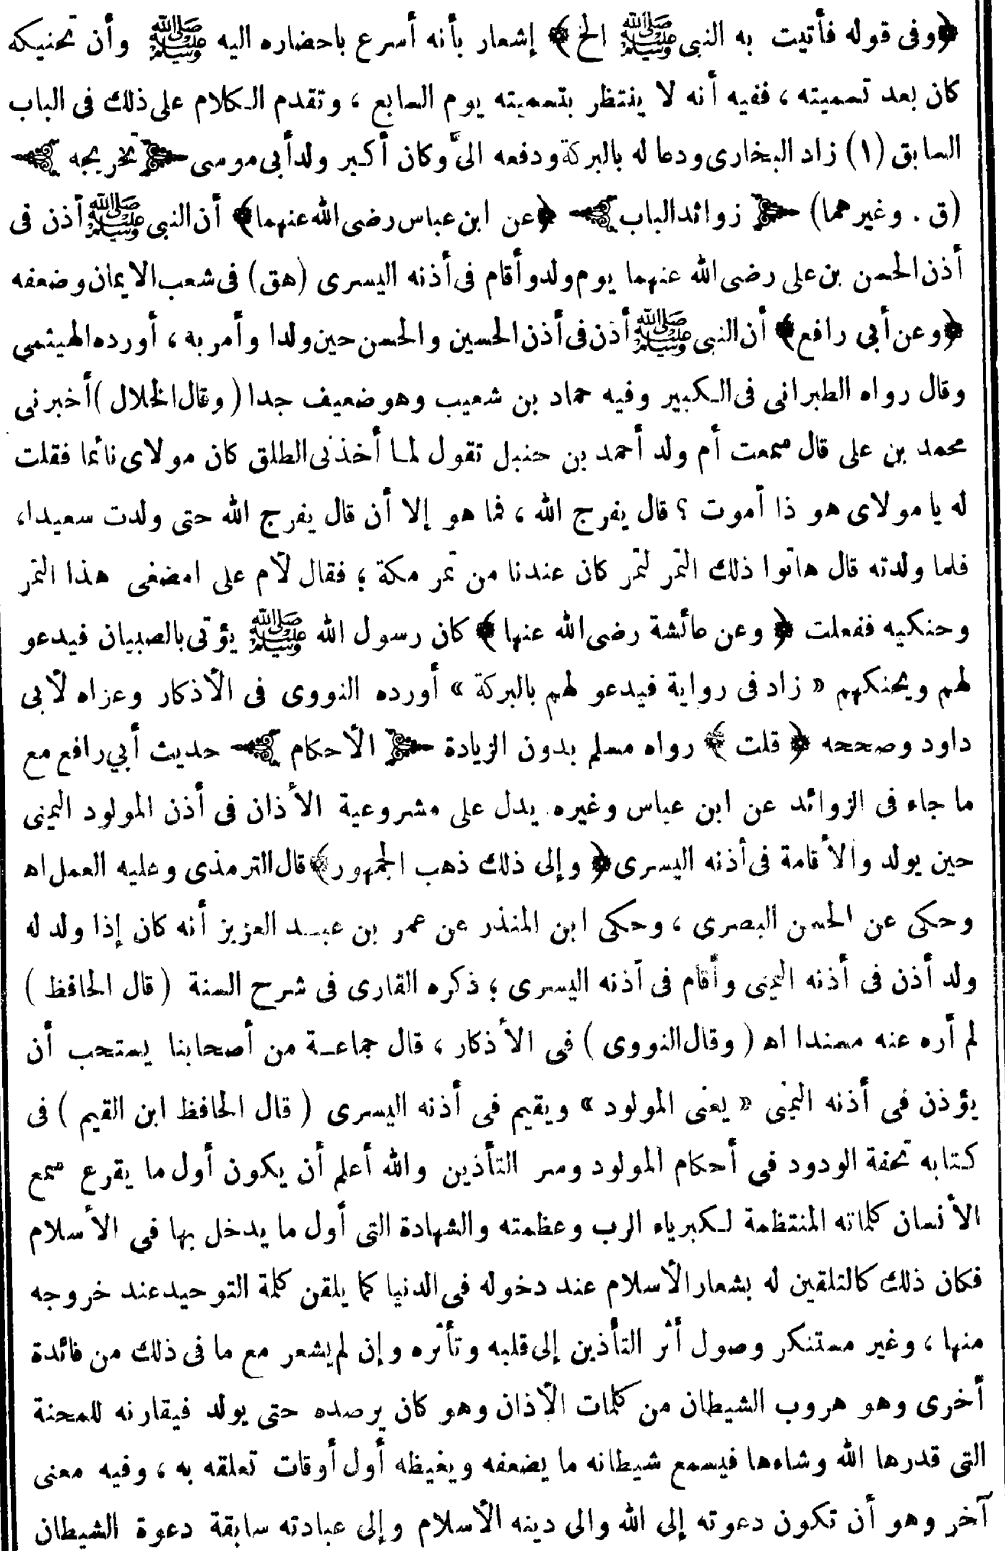 ﴿وفى قوله فأتيت به النبى ﷺ الخ﴾ إشعار بأنه أسرع باحضاره اليه ﷺ وأن تحنيكه
كان بعد تسميته ، ففيه أنه لا ينتظر بتسميته يوم السابع ، وتقدم الكلام على ذلك فى الباب
السابق (١) زاد البخارى ودعا له بالبركة ودفعه الىَّ وكان أكبر ولد أبى موسى ﴿تخريجه﴾
(ق . وغيرهما) ﴿زوائد الباب﴾ ﴿عن ابن عباس رضى الله عنهما﴾ أن النبى ﷺ أذن فى
أذن الحسن بن على رضى الله عنهما يوم ولد وأقام فى أذنه اليسرى (هق) فى شعب الايمان وضعفه
﴿وعن أبى رافع﴾ أن النبى ﷺ أذن فى أذن الحسين والحسن حين ولدا وأمر به ، أورده الهيثمى
وقال رواه الطبرانى فى الكبير وفيه حماد بن شعيب وهو ضعيف جدا (وقال الخلال) أخبرنى
محمد بن على قال سمعت أم ولد أحمد بن حنبل تقول لما أخذنى الطلق كان مولاى نائما فقلت
له يا مولاى هو ذا أموت ؟ قال يفرج الله ، فما هو إلا أن قال يفرج الله حتى ولدت سعيدا،
فلما ولدته قال هاتوا ذلك التمر لتمر كان عندنا من تمر مكة ؛ فقال لأم على امضغى هذا التمر
وحنكيه ففعلت ﴿وعن عائشة رضى الله عنها﴾ كان رسول الله ﷺ يؤتى بالصبيان فيدعو
لهم ويحنكهم « زاد فى رواية فيدعو لهم بالبركة » أورده النووى فى الأذكار وعزاه لأبى
داود وصححه ﴿قلت﴾ رواه مسلم بدون الزيادة ﴿الأحكام﴾ حديث أبي رافع مع
ما جاء فى الزوائد عن ابن عباس وغيره يدل على مشروعية الأذان فى أذن المولود اليمنى
حين يولد والأقامة فى أذنه اليسرى ﴿وإلى ذلك ذهب الجمهور﴾ قال الترمذى وعليه العمل اه
وحكى عن الحسن البصرى ، وحكى ابن المنذر عن عمر بن عبد العزيز أنه كان إذا ولد له
ولد أذن فى أذنه اليمنى وأقام فى أذنه اليسرى ؛ ذكره القارى فى شرح السنة (قال الحافظ)
لم أره عنه مسندا اه (وقال النووى) فى الأذكار ، قال جماعة من أصحابنا يستحب أن
يؤذن فى أذنه اليمنى « يعنى المولود » ويقيم فى أذنه اليسرى (قال الحافظ ابن القيم) فى
كتابه تحفة الودود فى أحكام المولود وسر التأذين والله أعلم أن يكون أول ما يقرع سمع
الأنسان كلماته المنتظمة لكبرياء الرب وعظمته والشهادة التى أول ما يدخل بها فى الأسلام
فكان ذلك كالتلقين له بشعار الأسلام عند دخوله فى الدنيا كما يلقن كلمة التوحيد عند خروجه
منها ، وغير مستنكر وصول أثر التأذين إلى قلبه وتأثره وإن لم يشعر مع ما فى ذلك من فائدة
أخرى وهو هروب الشيطان من كلمات الأذان وهو كان يرصده حتى يولد فيقارنه للمحنة
التى قدرها الله وشاءها فيسمع شيطانه ما يضعفه ويغيظه أول أوقات تعلقه به ، وفيه معنى
آخر وهو أن تكون دعوته إلى الله والى دينه الأسلام وإلى عبادته سابقة دعوة الشيطان